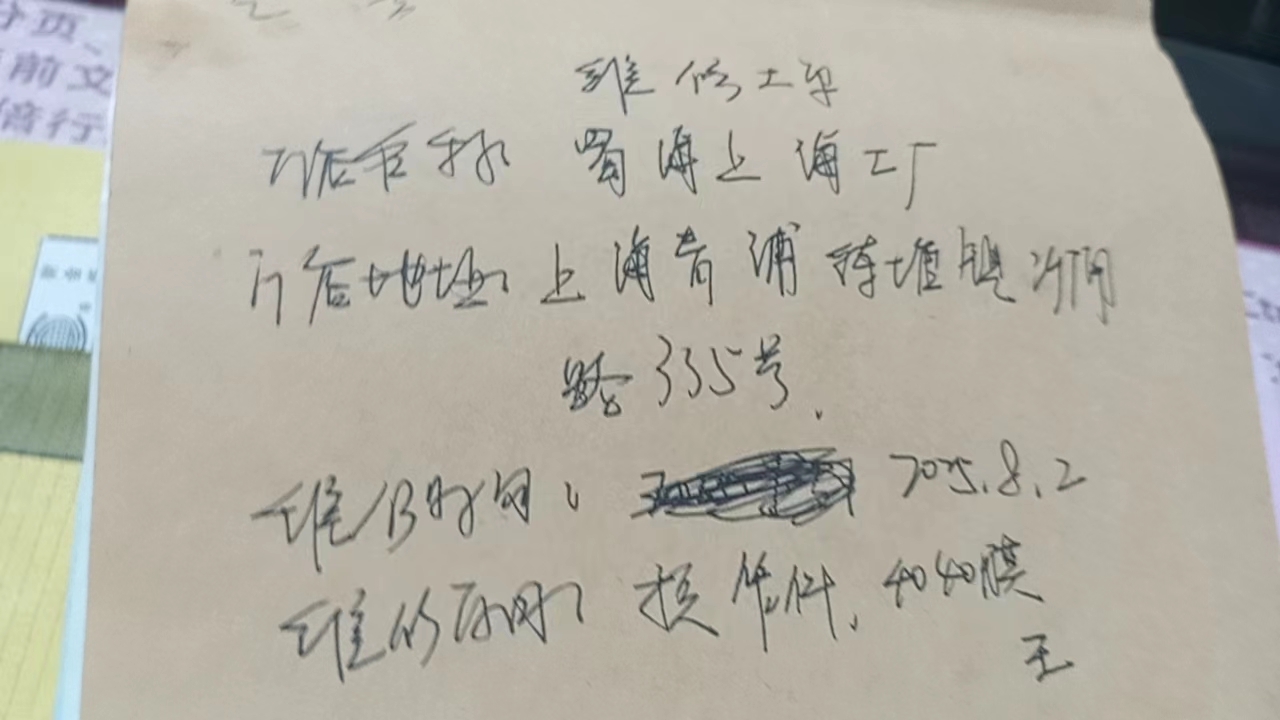 分页、
前文
倍行
维修工单
门店名称 蜀海上海工厂
门店地址 上海青浦练塘镇
路335号.
维修时间: 2025.8.2
维修 : 换 件. 4040膜